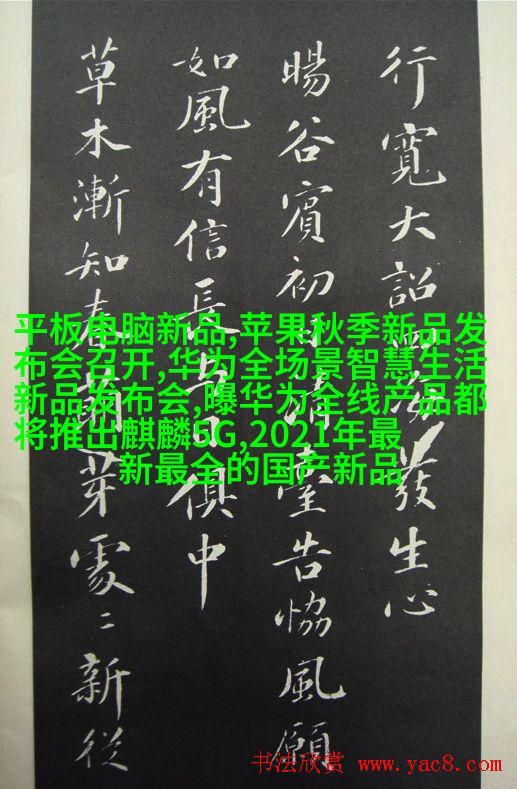 行寬大詔四海發生心
暘谷賓初日清臺告協風願
如風有信長與日俱中
草木漸知春萌芽處〻新從
平板电脑新品,苹果秋季新品发
布会召开,华为全场景智慧生活
新品发布会,曝华为全线产品都
将推出麒麟5G,2021年最
新最全的国产新品
书法欣赏 www.yac8.com